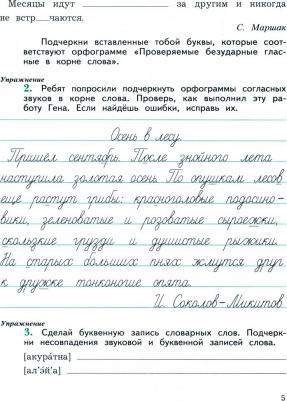 Месяцы идут ____________ за другим и никогда
не встр__чаются.
С. Маршак
Подчеркни вставленные тобой буквы, которые соот-
ветствуют орфограмме «Проверяемые безударные глас-
ные в корне слова».
Упражнение
2. Ребят попросили подчеркнуть орфограммы согласных
звуков в корне слова. Проверь, как выполнил эту ра-
боту Гена. Если найдёшь ошибки, исправь их.
Осень в лесу.
Пришёл сентябрь. После знойного лета
наступила золотая осень. По опушкам лесов
ещё растут грибы: красноголовые подосино-
вики, зеленоватые и розоватые сыроежки,
скользкие грузди и душистые рыжики.
На старых больших пнях жмутся друг
к дружке тонконогие опята.
И. Соколов-Микитов
Упражнение
3. Сделай буквенную запись словарных слов. Подчерк-
ни несовпадения звуковой и буквенной записей слова.
[акура́тна]
[ал'э́й'а]
5